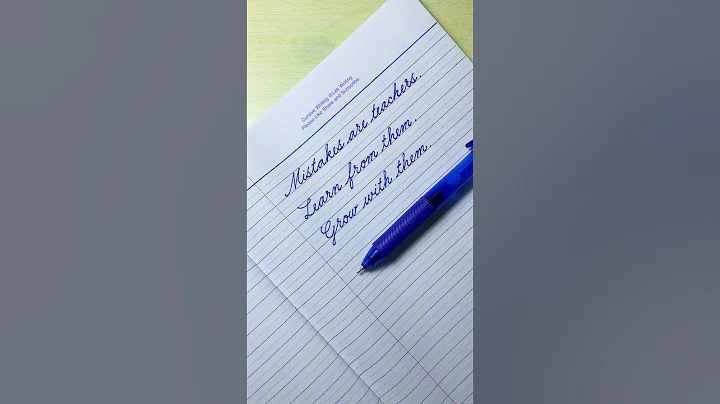 Cursive Writing @Lek Writing
Please Like Share and Subscribe
Mistakes are teachers.
Learn from them.
Grow with them.